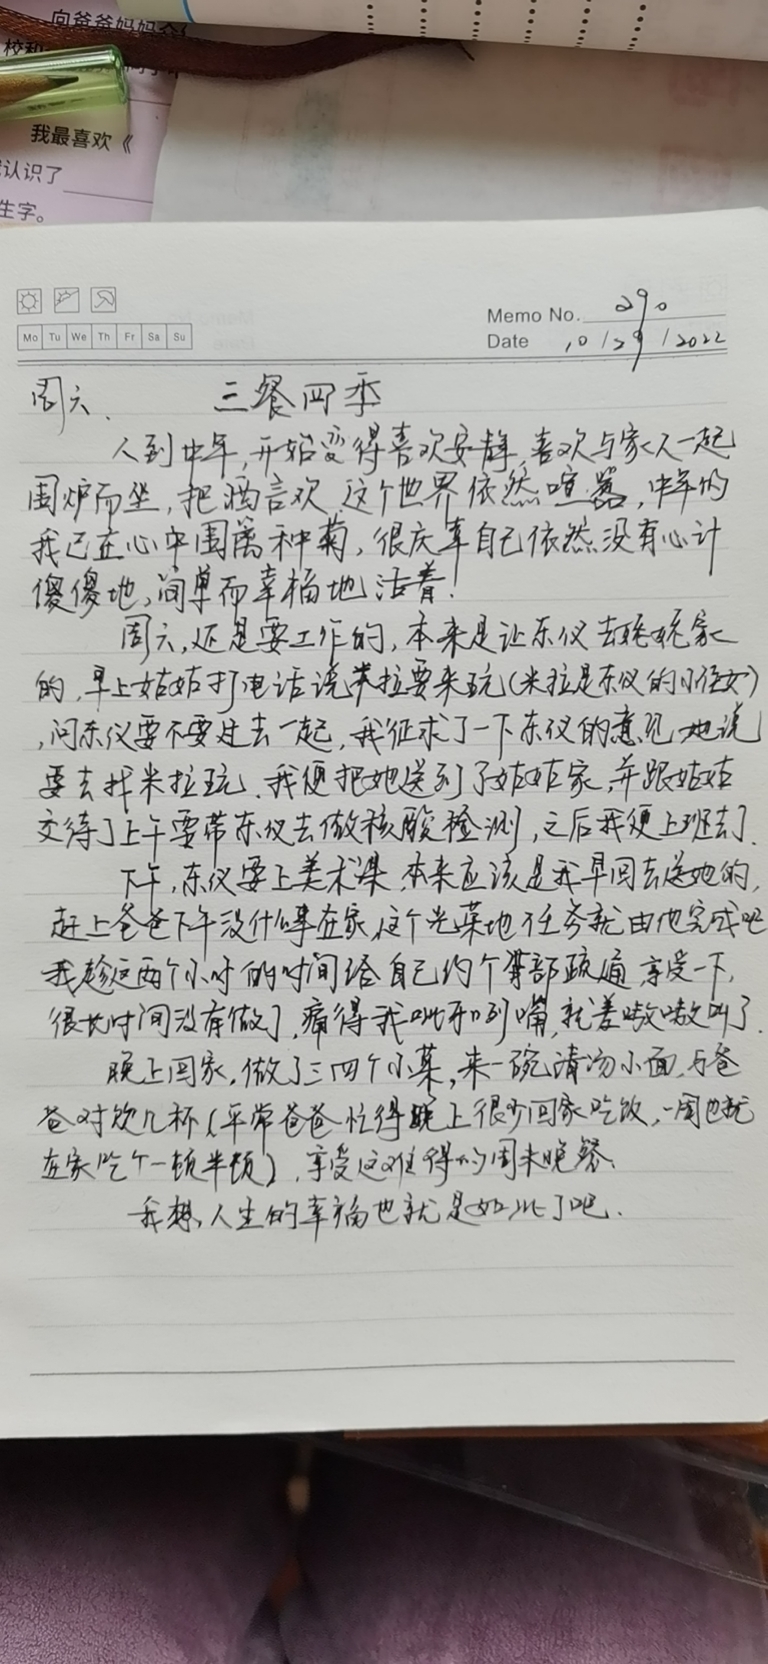 向爸爸妈妈介
校和
我最喜欢《
认识了
生字。
Memo No. 290
Mo Tu We Th Fr Sa Su
Date 10/29/2022
周六. 三餐四季
人到中年,开始变得喜欢安静,喜欢与家人一起
围炉而坐,把酒言欢,这个世界依然喧嚣,中年的
我已在心中围篱种菊,很庆幸自己依然没有心计
傻傻地,简单而幸福地活着!
周六,还是要工作的,本来是让东仪去姥姥家
的,早上姑姑打电话说米拉要来玩(米拉是东仪的小侄女)
,问东仪要不要过去一起,我征求了一下东仪的意见,她说
要去找米拉玩.我便把她送到了姑姑家,并跟姑姑
交待了上午要带东仪去做核酸检测,之后我便上班去了.
下午,东仪要上美术课,本来应该是我早回去送她的,
赶上爸爸下午没什么事在家,这个光荣地任务就由他完成吧
我趁这两个小时的时间给自己约个臀部疏通,享受一下,
很长时间没有做了,痛得我呲牙咧嘴,就差嗷嗷叫了.
晚上回家,做了三四个小菜,来一碗清汤小面,与爸
爸对饮几杯(平常爸爸忙得晚上很少回家吃饭,一周也就
在家吃个一顿半顿),享受这难得的周末晚餐.
我想,人生的幸福也就是如此了吧.